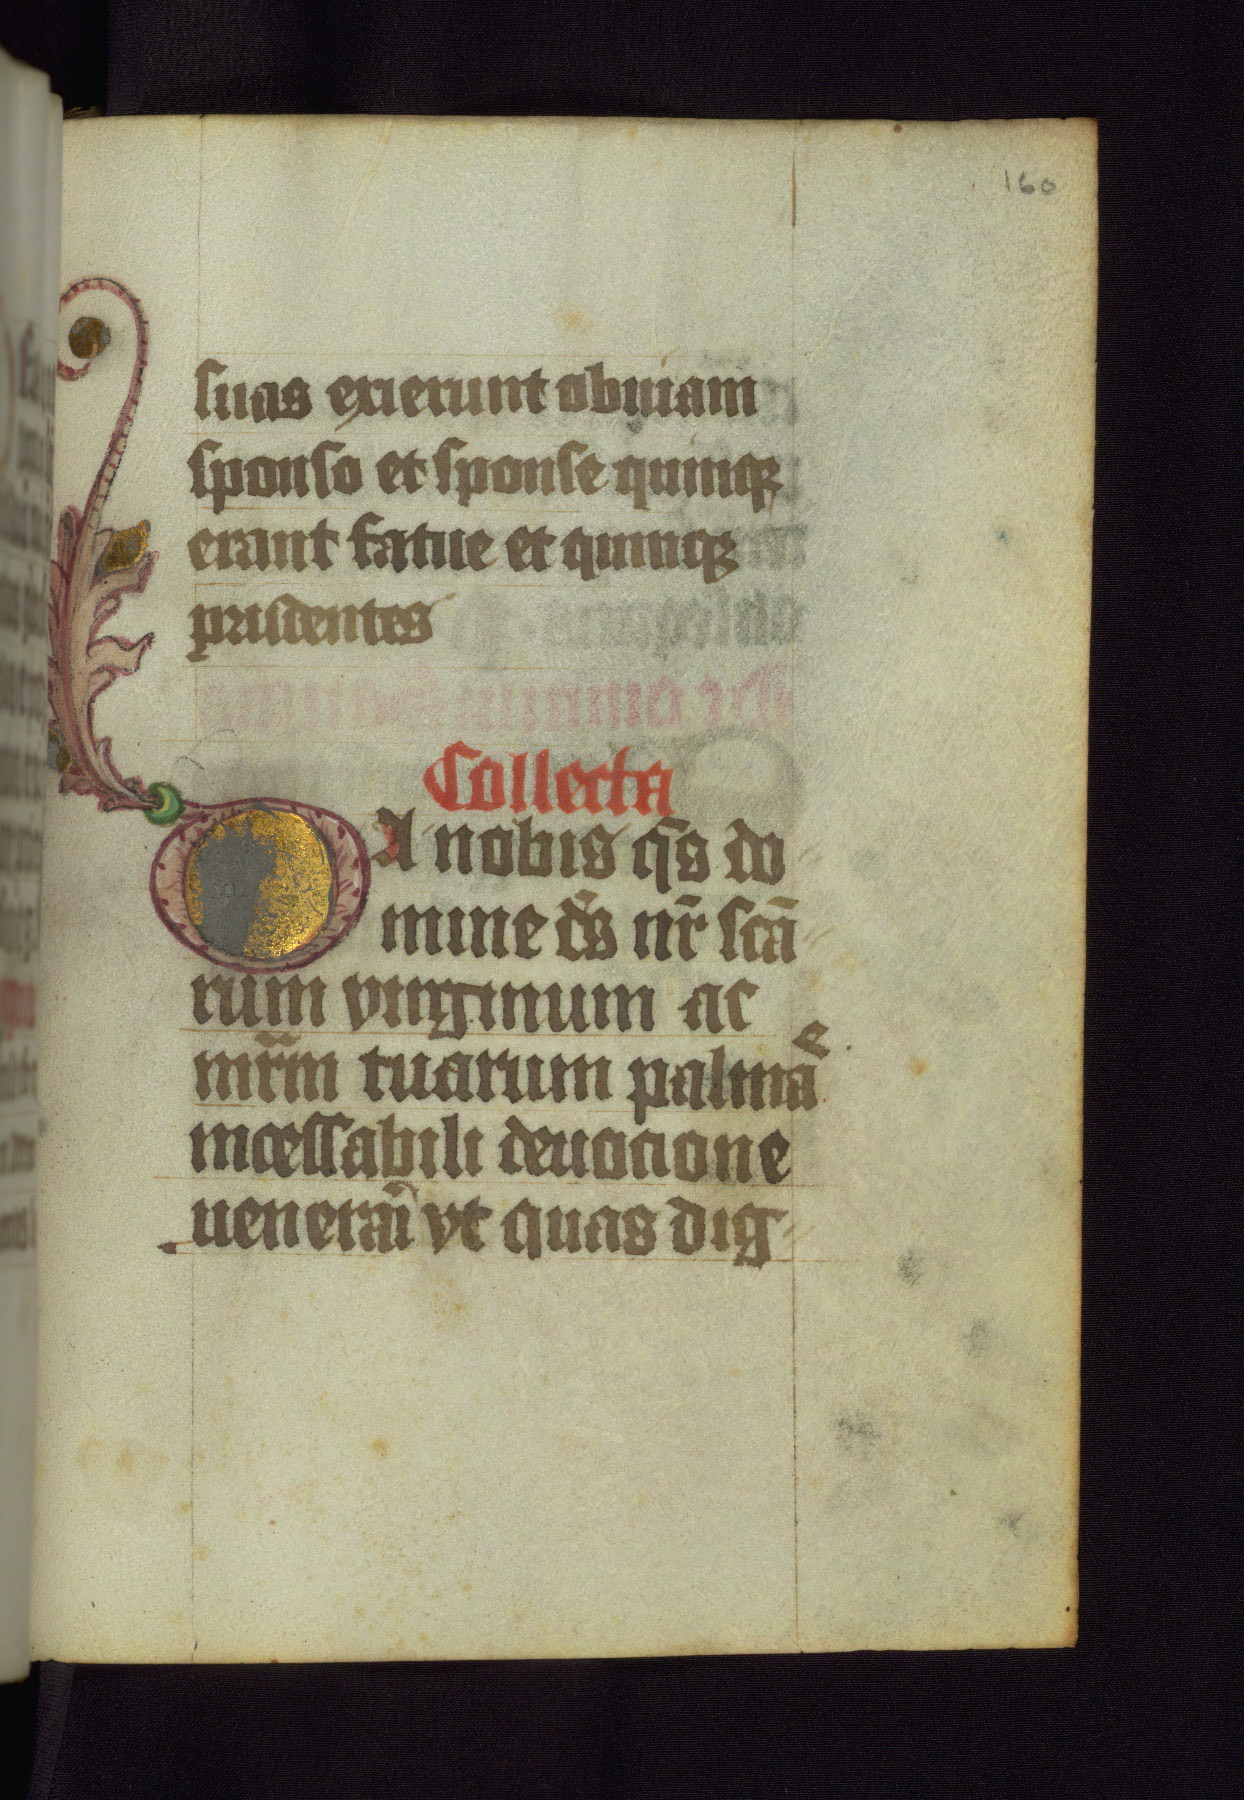 160
suas exierunt obuiam
sponso et sponse quinqꝫ
erant fatue et quinqꝫ
prudentes
Collecta
DA nobis q̄s do
mine ds̄ nr̄ scā
rum virginum ac
mr̄m̄ tuarum palmaᷤ
incessabili deuocione
uenerāi vt quas dig